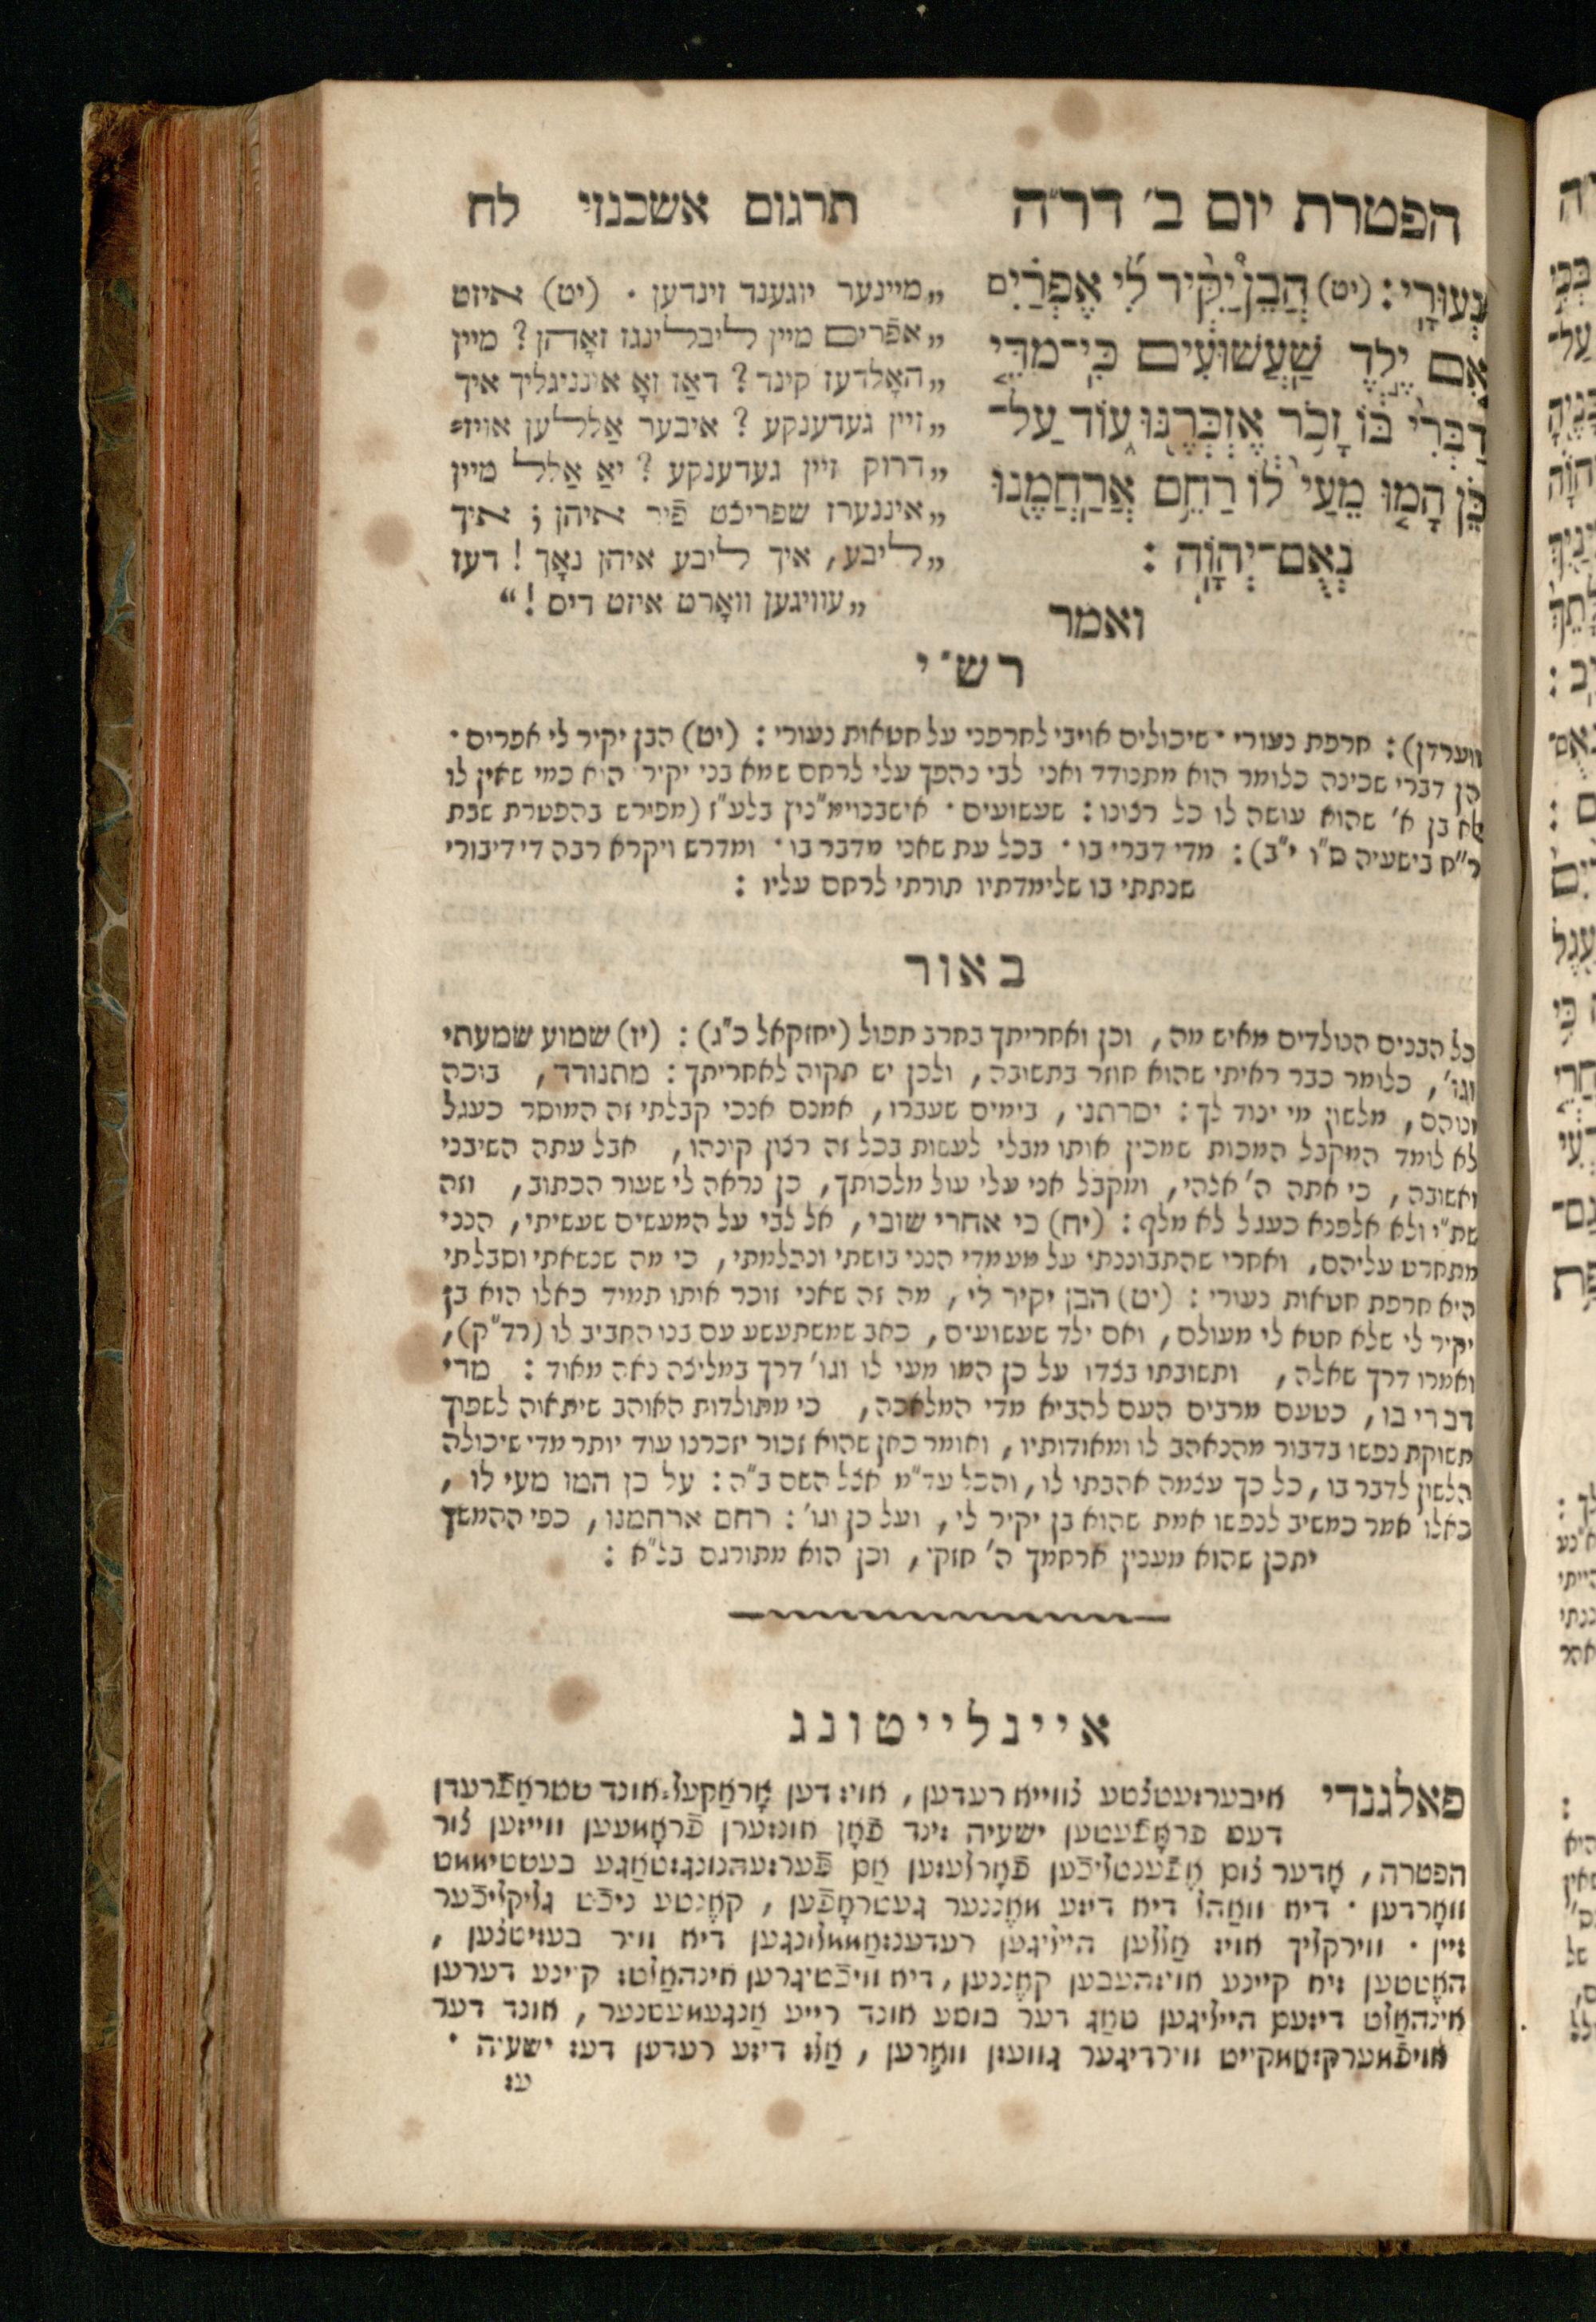 הפטרת יום ב׳ דר״ה
תרגום אשכנזי לח
נְעוּרָי׃ (יט) הֲבֵן יַקִּיר לִי אֶפְרַיִם
אִם יֶלֶד שַׁעֲשׁוּעִים כִּי־מִדֵּי
דַבְּרִי בּוֹ זָכֹר אֶזְכְּרֶנּוּ עוֹד עַל־
כֵּן הָמוּ מֵעַי לוֹ רַחֵם אֲרַחֲמֶנּוּ
נְאֻם־יְהוָֹה׃
ואמר
„מיינער יוגענד זינדען . (יט) איזט
„אפֿרים מיין ליבלינגז זאָהן? מיין
„האָלדעז קינד? דאַז זאָ אינניגליך איך
„זיין געדענקע? איבער אַללען אויז⸗
„דרוק זיין געדענקע? יאַ אַלל מיין
„איננערז שפריכֿט פֿיר איהן; איך
„ליבע, איך ליבע איהן נאָך! דעז
„עוויגען וואָרט איזט דיס!“
רש״י
ווערדן): חרפת נעורי · שיכולים אויבי לחרפני על חטאות נעורי: (יט) הבן יקיר לי אפרים ·
הן דברי שכינה כלומר הוא מתנודד ואני לבי נהפך עלי לרחם שמא בני יקיר הוא כמי שאין לו
אלא בן א׳ שהוא עושה לו כל רצונו: שעשועים · בלע״ז (מפורש בהפטרת שבת
ר״ח בישעיה ס״ו י״ב): מדי דברי בו · בכל עת שאני מדבר בו · ומדרש ויקרא רבה די דיבורי
שנתתי בו שלימדתיו תורתי לרחם עליו:
באור
כל הבנים הנולדים מאיש מה, וכן ואחריתך בחרב תפול (יחזקאל כ״ג): (יז) שמוע שמעתי
וגו׳, כלומר כבר ראיתי שהוא חוזר בתשובה, ולכן יש תקוה לאחריתך: מתנודד, בוכה
ונוהם, מלשון מי ינוד לך: יסרתני, בימים שעברו, אמנם אנכי קבלתי זה המוסר כעגל
לא לומד המקבל המכות שמכין אותו מבלי לעשות בכל זה רצון קונהו, אבל עתה השיבני
ואשובה, כי אתה ה׳ אלהי, ומקבל אני עלי עול מלכותך, כן נראה לי שעור הכתוב, וזה
שת״י ולא אלפנא כעגל לא מלף: (יח) כי אחרי שובי, אל לבי על המעשים שעשיתי, הנני
מתחרט עליהם, ואחרי שהתבוננתי על מעמדי הנני בושתי ונכלמתי, כי מה שנשאתי וסבלתי
היא חרפת חטאות נעורי: (יט) הבן יקיר לי, מה זה שאני זוכר אותו תמיד כאלו הוא בן
יקיר לי שלא חטא לי מעולם, ואם ילד שעשועים, כאב שמשתעשע עם בנו החביב לו (רד״ק),
ואמרו דרך שאלה, ותשובתו בצדו על כן המו מעי לו וגו׳ דרך במליצה נאה מאוד: מדי
דברי בו, כטעם מרבים העם להביא מדי המלאכה, כי מתולדות האוהב שיתאוה לשפוך
תשוקת נפשו בדבור מהנאהב לו ומאודותיו, ואומר כאן שהוא זכור יזכרנו עוד יותר מדי שיכולה
הלשון לדבר בו, כל כך עצמה אהבתו לו, והכל עד״מ אצל השם ב״ה: על כן המו מעי לו,
כאלו אמר כמשיב לנפשו אמת שהוא בן יקיר לי, ועל כן וגו׳: רחם ארחמנו, כפי ההמשך
יתכן שהוא מענין ארחמך ה׳ חזקי, וכן הוא מתורגם בל״א:
איינלייטונג
פאלגנדי איבערזעטצטע צווייא רעדען, אויז דען אָראַקעל⸗אונד שטראַפֿרעדן
דעס פראָפֿעטען ישעיה זינד פֿאָן אונזערן פֿראָממען ווייזען צור
הפטרה, אָדער צום אֶפֿענטליכֿען פֿאָרלעזען אַם פֿערזעהנונגזטאַגע בעשטיממט
וואָרדען · דיא וואַהל דיא דיזע מאֶננער געטראָפֿען, קאָנטע ניכֿט גליקליכֿער
זיין · ווירקליך אויז אַללען הייליגען רעדענזאַממלונגען דיא וויר בעזיטצען,
האֶטטען זיא קיינע אויזהעבען קאֶננען, דיא וויכֿטיגרען אינהאַלטז קיינע דערען
אינהאַלט דיזעם הייליגען טאַג דער בוסע אונד רייע אַנגעמעסנער, אונד דער
אויפֿמערקזאַמקייט ווירדיגער געוועזן וואֶרען, אַלז דיזע רעדען דעז ישעיה ·
עז